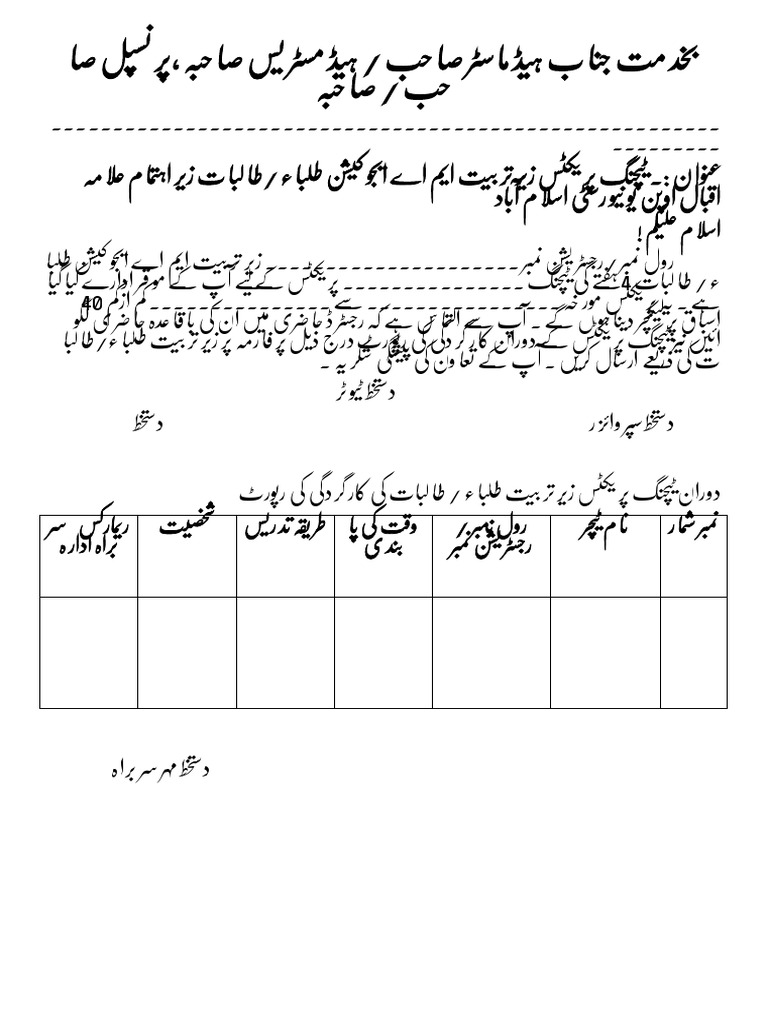 بخدمت جناب ہیڈماسٹرصاحب / ہیڈمسٹریس صاحبہ ،پرنسپل صا
حب / صاحبہ
-------------------------------------------------------
---------
عنوان :۔ ٹیچنگ پریکٹس زیرتربیت ایم اے ایجوکیشن طلباء /طالبات زیراہتمام علامہ
اقبال اوپن یونیورسٹی اسلام آباد
اسلام علیکم !
رول نمبر/رجسٹریشن نمبر--------------------- زیر تربیت ایم اے ایجوکیشن طلبا
ء/ طالبات 4 ہفتے کی ٹیچنگ --------------- پریکٹس کےلیے آپ کے موقرادارے کیا گیا
ہے۔ یہ پریکٹس مورخہ --------------- سے --------------- کم ازکم 40
اسباق پر لیکچر دینا ہوں گے ۔ آپ سے التماس ہے کہ رجسٹرڈ حاضری میں ان کی باقاعدہ حاضری لگو
ائیں نیز ٹیچنگ پریکٹس کے دوران کارکردگی کی رپورٹ درج ذیل پرفارمہ پر زیر تربیت طلباء/طالبا
ت کی ذریعے ارسال کریں ۔ آپ کے تعاون کی پیشگی شکریہ ۔
دستخط ٹیوٹر
دستخط سپروائزر دستخط
دوران ٹیچنگ پریکٹس زیر تربیت طلباء / طالبات کی کارگردگی کی رپورٹ
نمبرشمار نام ٹیچر رول نمبر/ وقت کی پا طریقہ تدریس شخصیت ریمارکس سر
رجسٹریشن نمبر بندی براہ ادارہ
دستخط مہر سربراہ